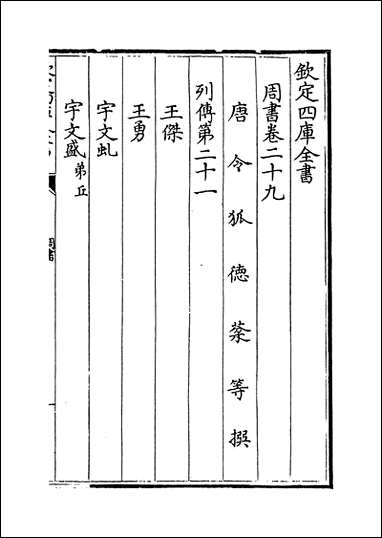 欽定四庫全書
周書卷二十九
唐令狐德棻等撰
列傳第二十一
王傑
王勇
宇文虬
宇文盛弟丘